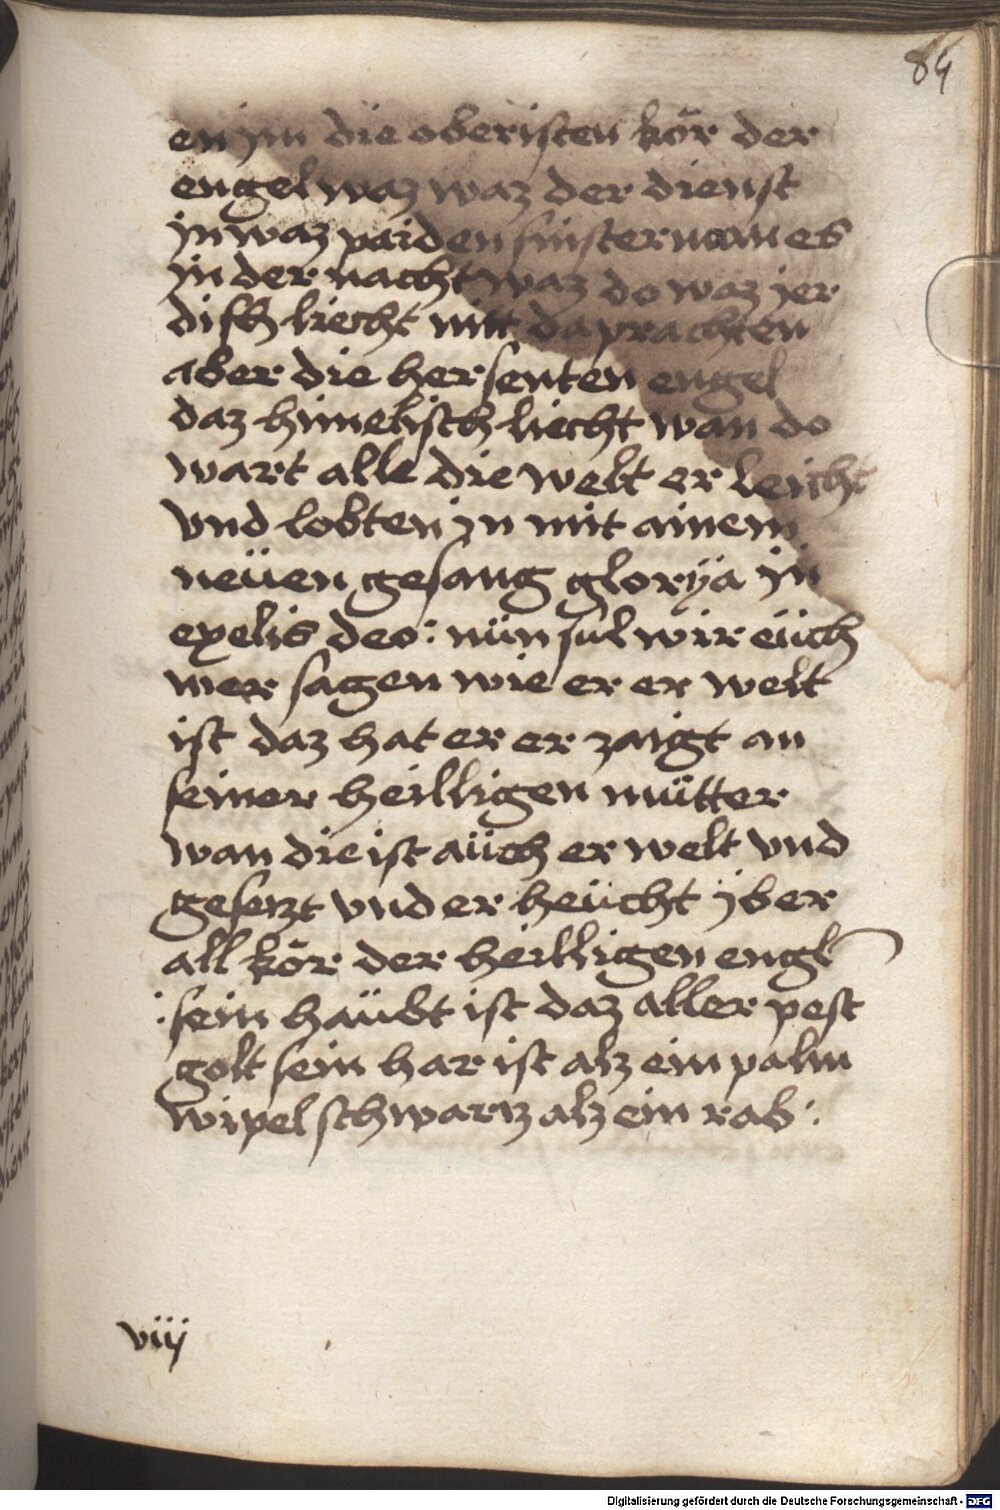 84
en jm die oberisten kör der
engel waz waz der dienst
jn waz paiden finster wan es
jn der nacht waz do waz jer
disch liecht mitt da prachten
aber die her senten engel
daz himelisch liecht wan do
wart alle die welt er leicht
vnd lobten jn mit ainem
neüen gesang glorÿa jn
exelis deo : nün sul wir eüch
mer sagen wie er er welt
ist daz hat er er zaigt an
seiner heilligen mütter
wan die ist aüch er welt vnd
gesetzt vnd er heücht jber
all kör der heilligen engl
: sein haübt ist daz aller pest
golt sein har ist alz ein palm
wipel schwartz alz ein rab :
viij
Digitalisierung gefördert durch die Deutsche Forschungsgemeinschaft - DFG